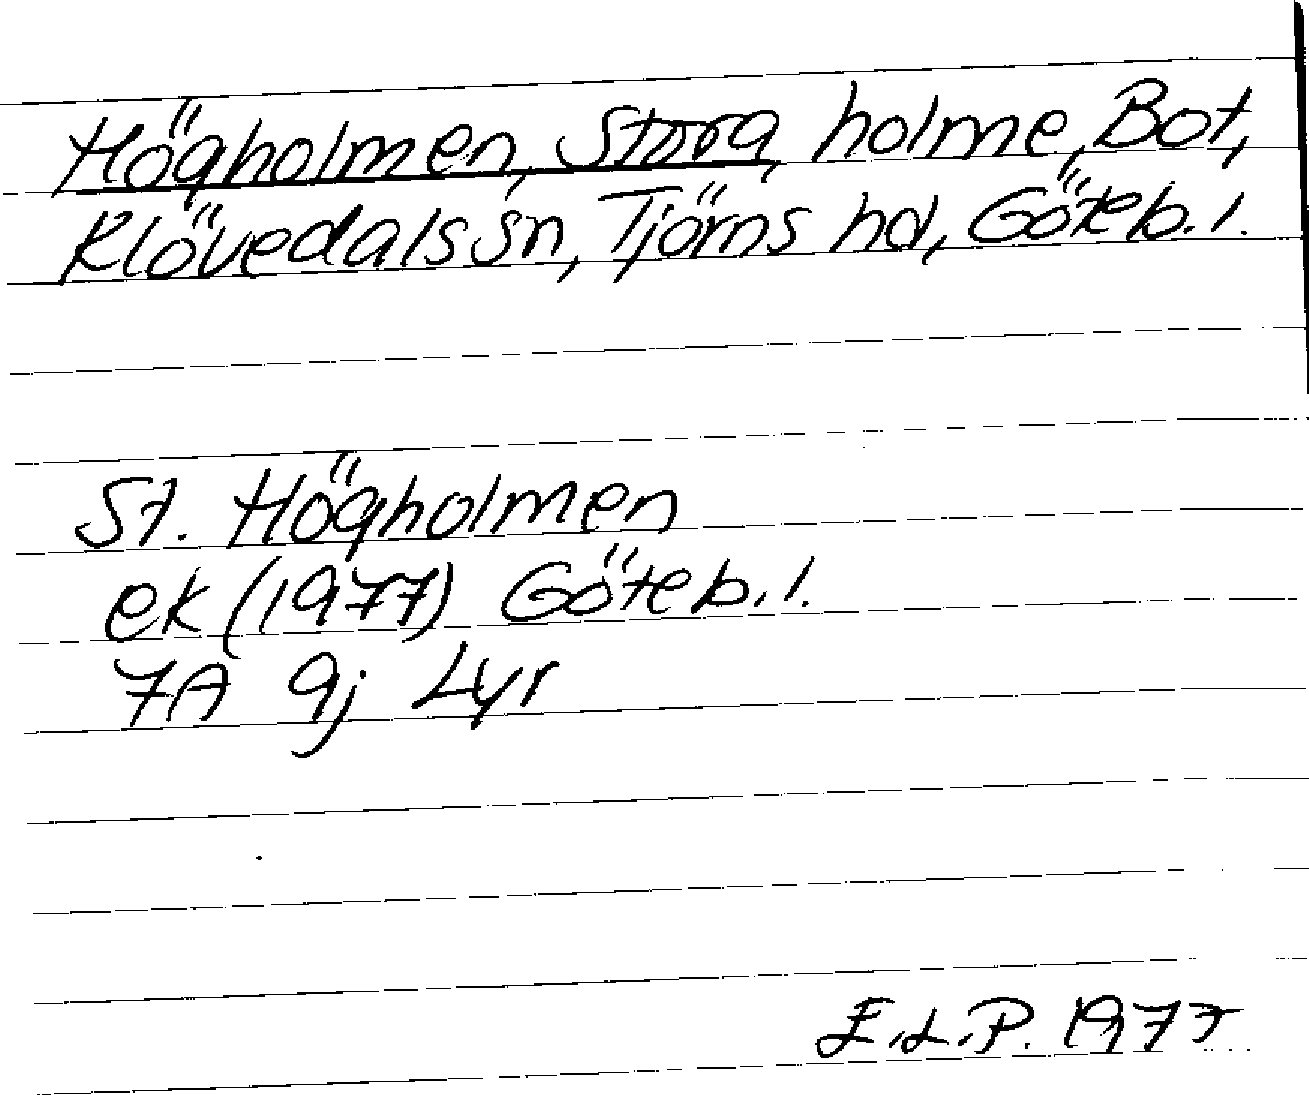 Högholmen, Stora, holme, Bot,
Klövedals sn, Tjörns hd, Göteb. l.
St. Högholmen
ek (1977) Göteb. l.
7A 9j Lyr
E.L.P. 1977